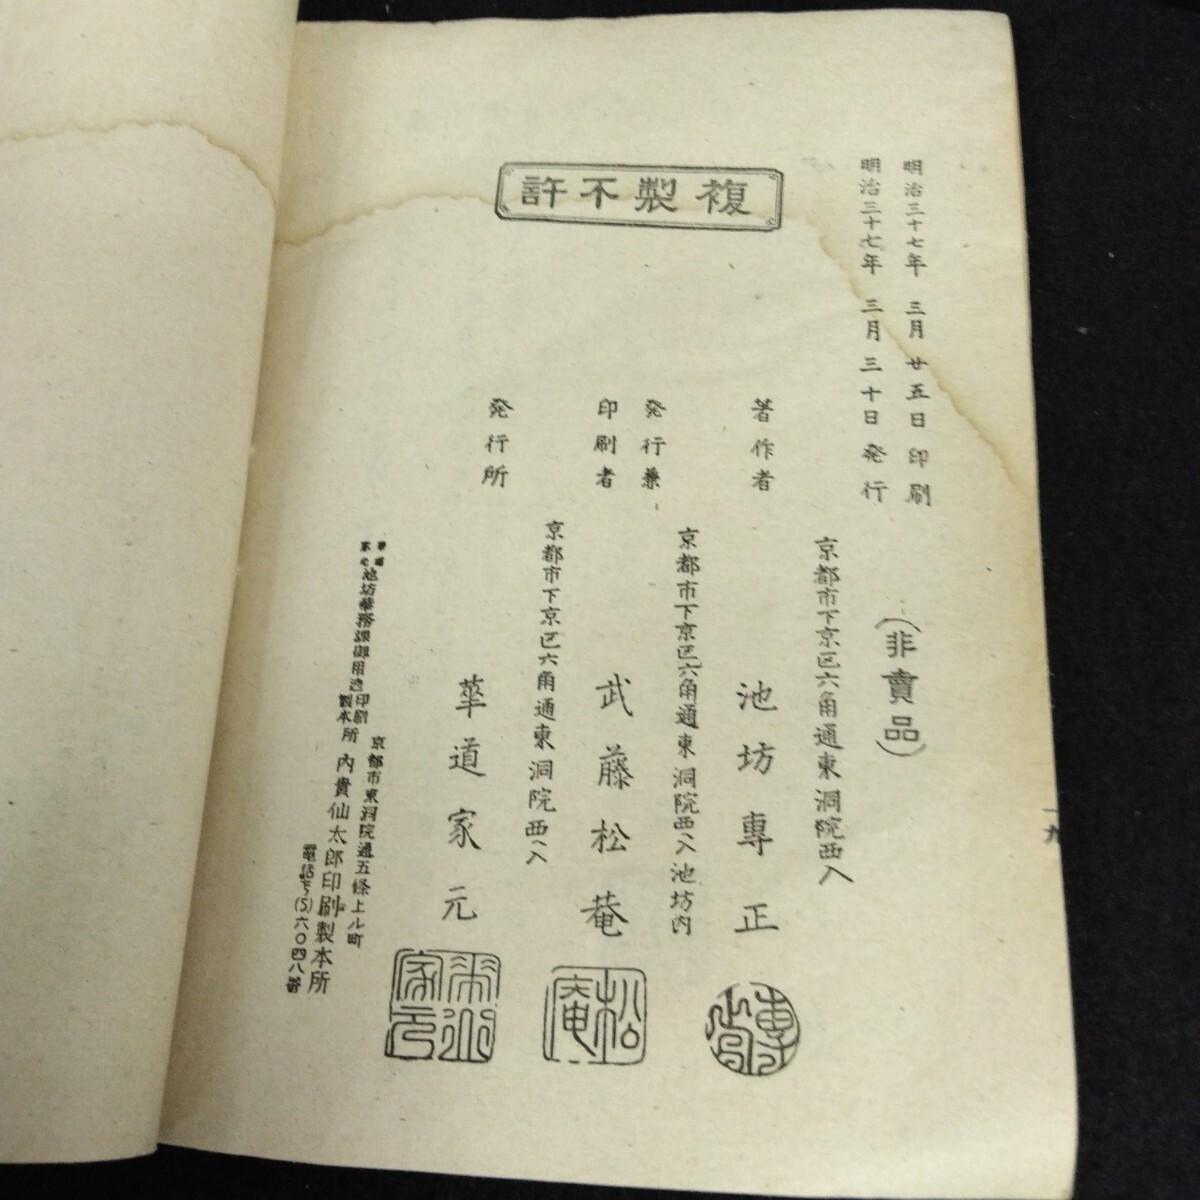 複製不許
明治三十七年三月廿五日印刷
明治三十七年三月三十日発行
(非賣品)
京都市下京区六角通東洞院西入
著作者 池坊專正
京都市下京区六角通東洞院西入池坊内
発行兼
印刷者 武藤松菴
京都市下京区六角通東洞院西入
発行所 華道家元
池坊華務課御用達印刷製本所
京都市東洞院通五條上ル町
内貴仙太郎印刷製本所
電話下(5)六〇四八番
松庵
家元
一九